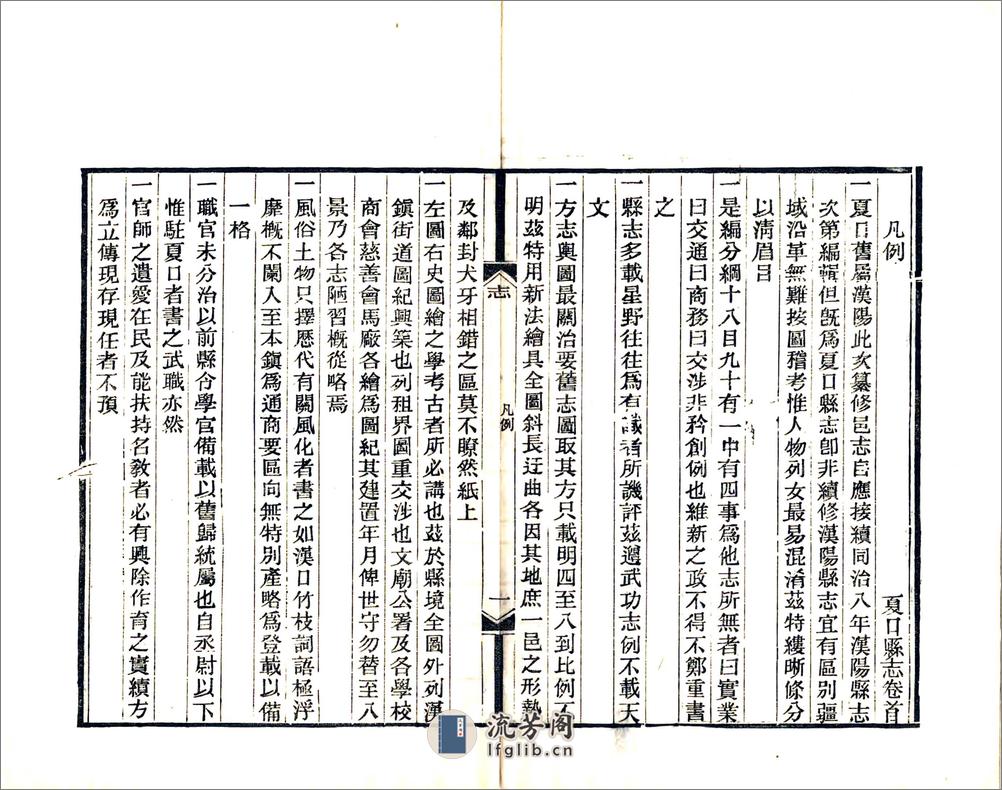 凡例
夏口縣志卷首
一夏口舊屬漢陽此次纂修邑志自應接續同治八年漢陽縣志
次第編輯但旣爲夏口縣志卽非續修漢陽縣志宜有區別疆
域沿革無難按圖稽考惟人物列女最易混淆茲特縷晰條分
以淸眉目
一是編分綱十八目九十有一中有四事爲他志所無者曰實業
曰交通曰商務曰交涉非矜創例也維新之政不得不鄭重書
之
一縣志多載星野往往爲有識者所譏評茲遵武功志例不載天
文
一方志輿圖最關治要舊志圖取其方只載明四至八到比例不
明茲特用新法繪具全圖斜長迂曲各因其地庶一邑之形勢
志
凡例
一
及鄰封犬牙相錯之區莫不瞭然紙上
一左圖右史圖繪之學考古者所必講也茲於縣境全圖外列漢
鎭街道圖紀興築也列租界圖重交涉也文廟公署及各學校
商會慈善會馬廠各繪爲圖紀其建置年月俾世守勿替至八
景乃各志陋習槪從略焉
一風俗土物只擇歷代有關風化者書之如漢口竹枝詞語極浮
靡槪不闌入至本鎭爲通商要區向無特別產略爲登載以備
一格
一職官未分治以前縣令學官備載以舊歸統屬也自丞尉以下
惟駐夏口者書之武職亦然
一官師之遺愛在民及能扶持名敎者必有興除作育之實績方
爲立傳現存現任者不預
流芳阁
lfglib.cn